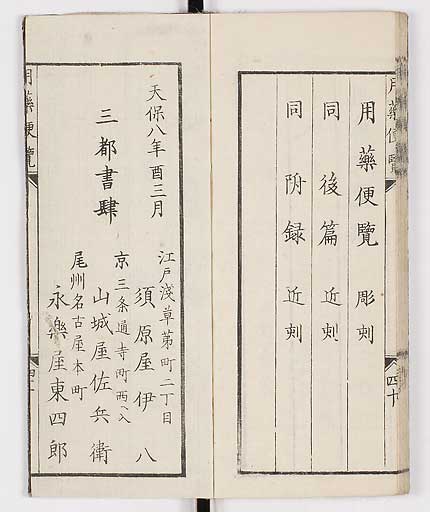 用藥便覽
用藥便覽 彫刻
同 後篇 近刻
同 附録 近刻
四十
天保八年酉三月
三都書肆
江戸淺草茅町二丁目
須原屋伊八
京三条通寺町西ヘ入
山城屋佐兵衛
尾州名古屋本町
永樂屋東四郎
用藥便覽